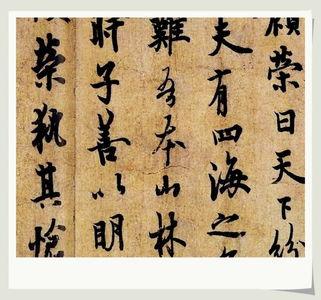 顧榮曰天下紛
夫有四海之
難吾本山林
時子善以明
榮執其愴